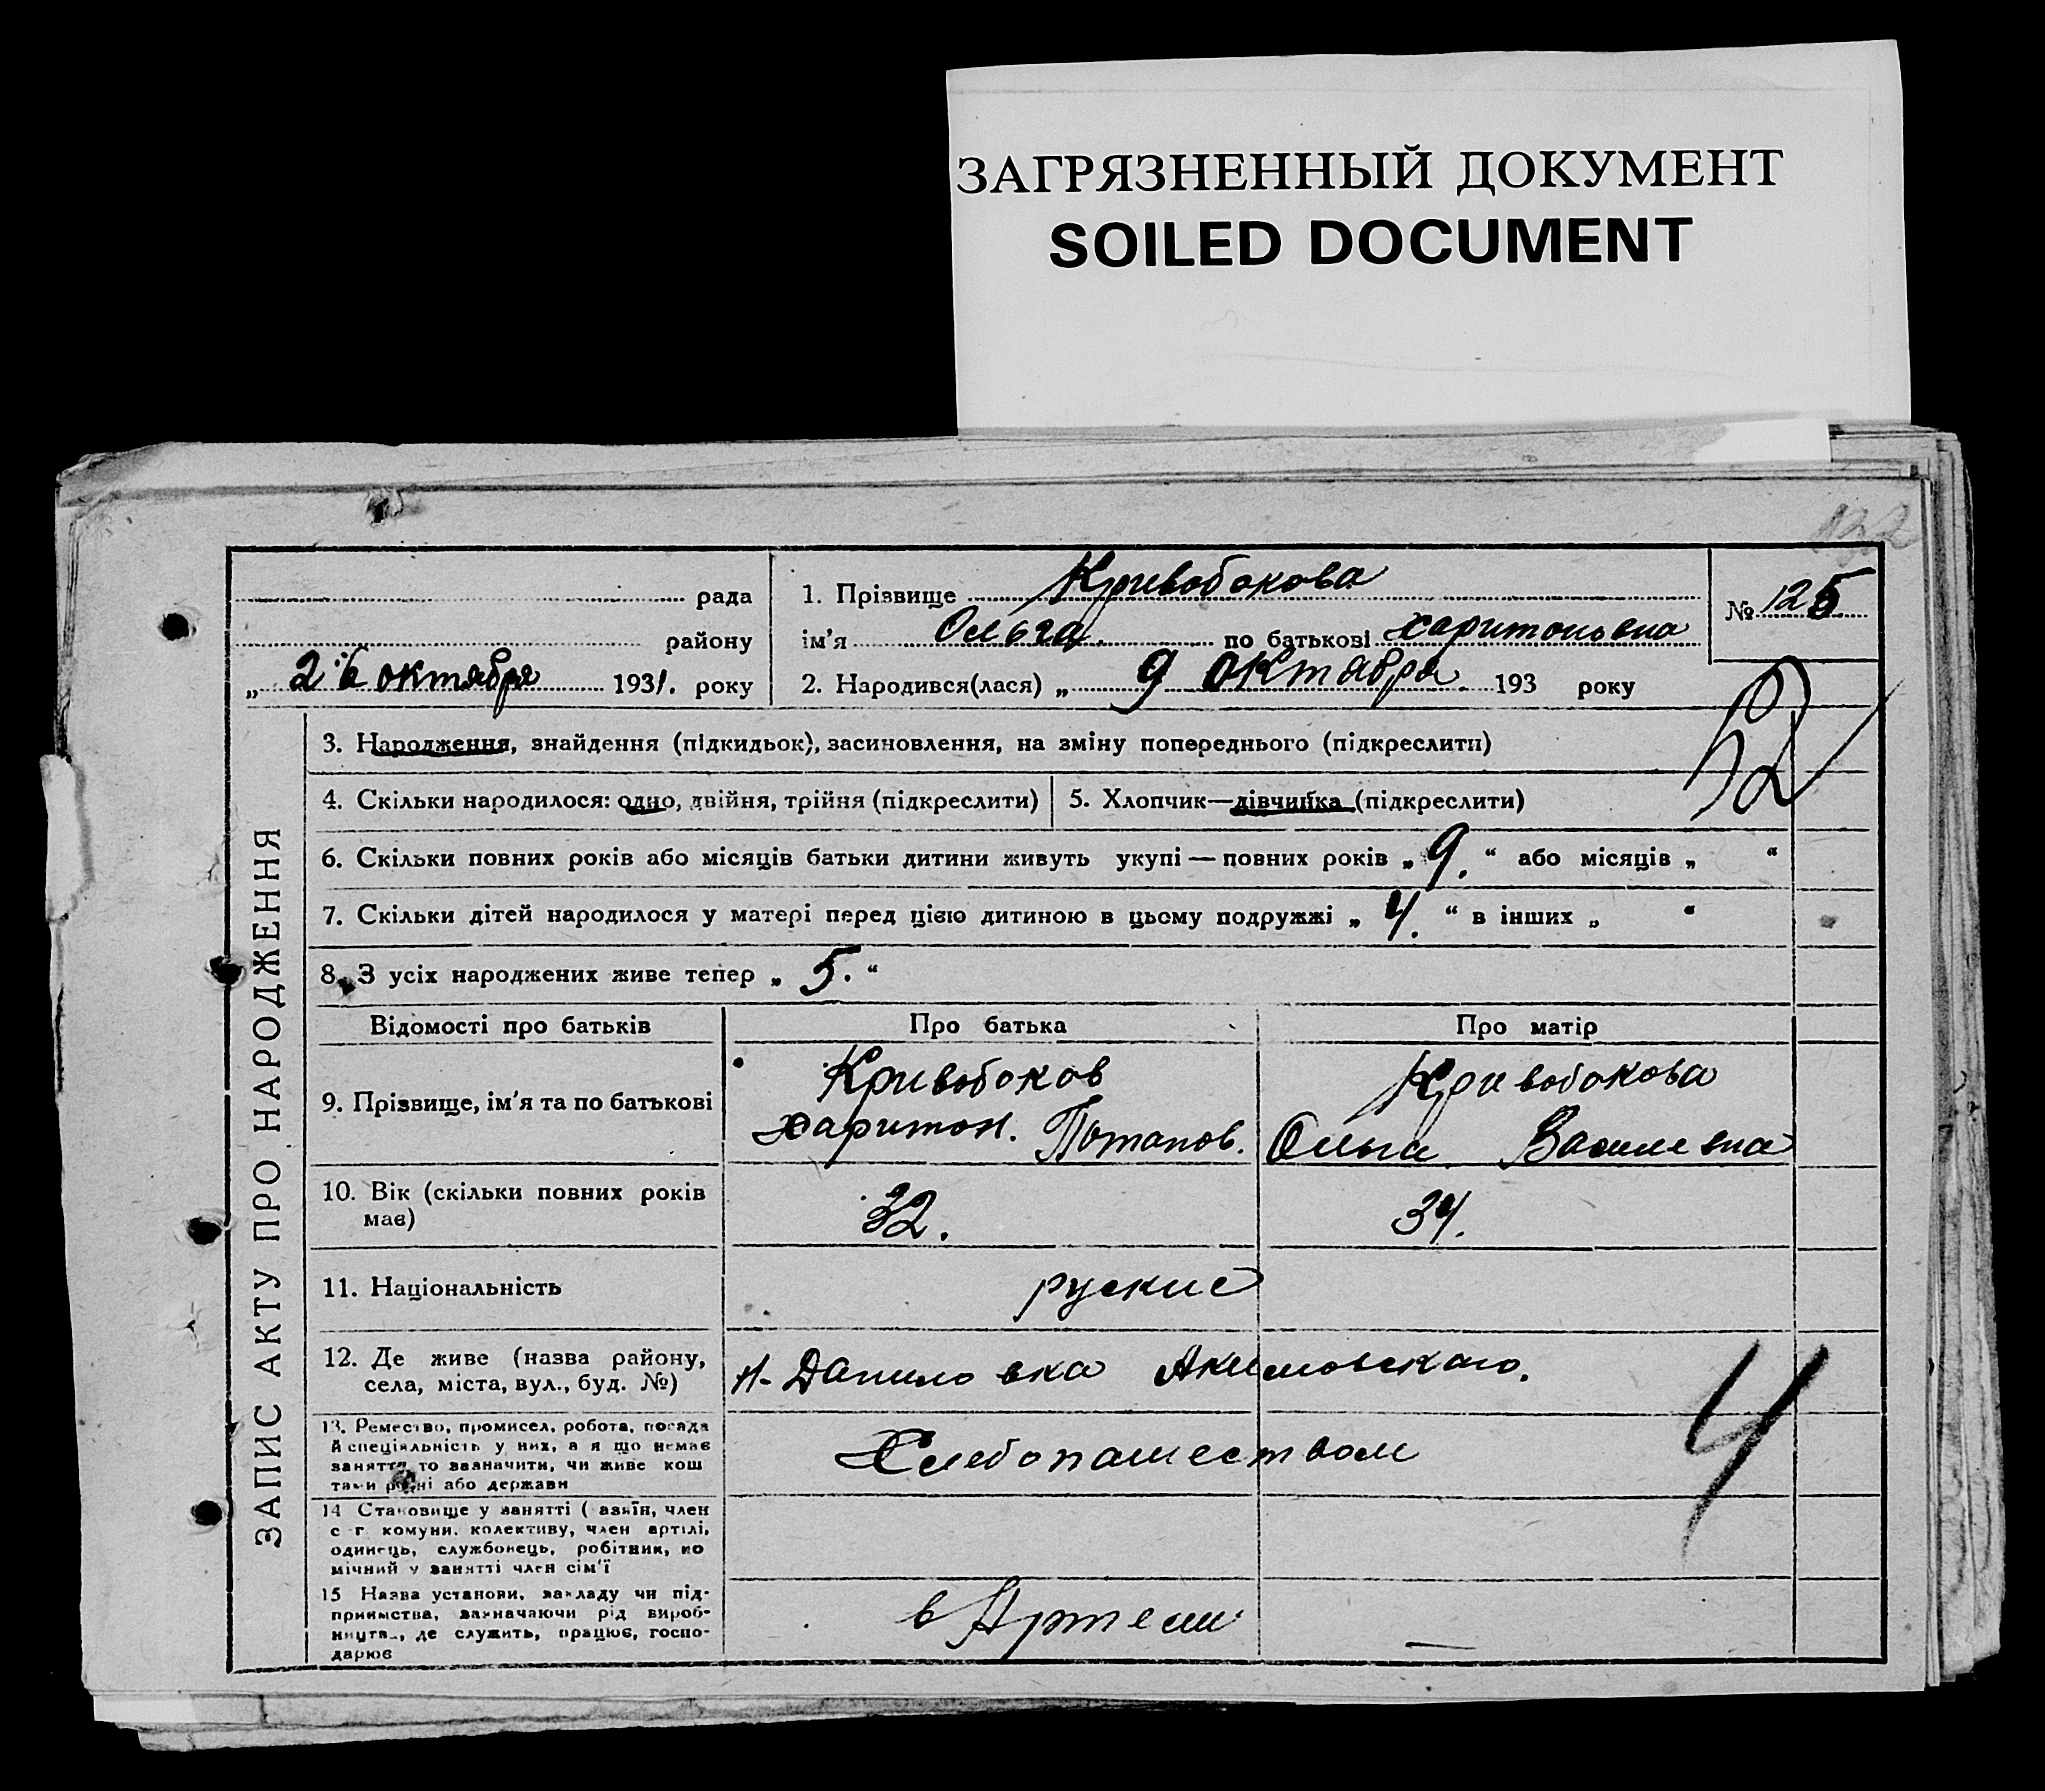 ЗАГРЯЗНЕННЫЙ ДОКУМЕНТ
SOILED DOCUMENT
132
рада
району
„ 26 октября 1931. року
1. Прізвище Кривобокова
ім'я Ольга. по батькові Харитоновна
2. Народився(лася) „ 9 октября 193 року
№ 125
ЗАПИС АКТУ ПРО НАРОДЖЕННЯ
3. Народження, знайдення (підкидьок), засиновлення, на зміну попереднього (підкреслити)
4. Скільки народилося: одно, двійня, трійня (підкреслити)
5. Хлопчик—дівчинка (підкреслити)
6. Скільки повних років або місяців батьки дитини живуть укупі — повних років „ 9. “ або місяців „ “
7. Скільки дітей народилося у матері перед цією дитиною в цьому подружжі „ 4. “ в інших „ “
8. З усіх народжених живе тепер „ 5. “
Відомості про батьків
Про батька
Про матір
9. Прізвище, ім'я та по батькові
Кривобоков
Харитон. Потапов.
Кривобокова
Ольга Василевна
10. Вік (скільки повних років
має)
32.
34.
11. Національність
руские
12. Де живе (назва району,
села, міста, вул., буд. №)
Н-Даниловка Акимовскаго.
13. Ремество, промисел, робота, посада
й спеціяльність у них, а я що немає
заняття то зазначити, чи живе кош
тами рідні або держави
Хлебопашеством
4
14 Становище у занятті ( азяїн, член
с г комуни, колективу, член артілі,
одинець, службовець, робітник, по
мічний у занятті член сім'ї
15 Назва установи, закладу чи під-
приємства, зазначаючи рід вироб-
ництв., де служить, працює, госпо-
дарює
в Артели
—